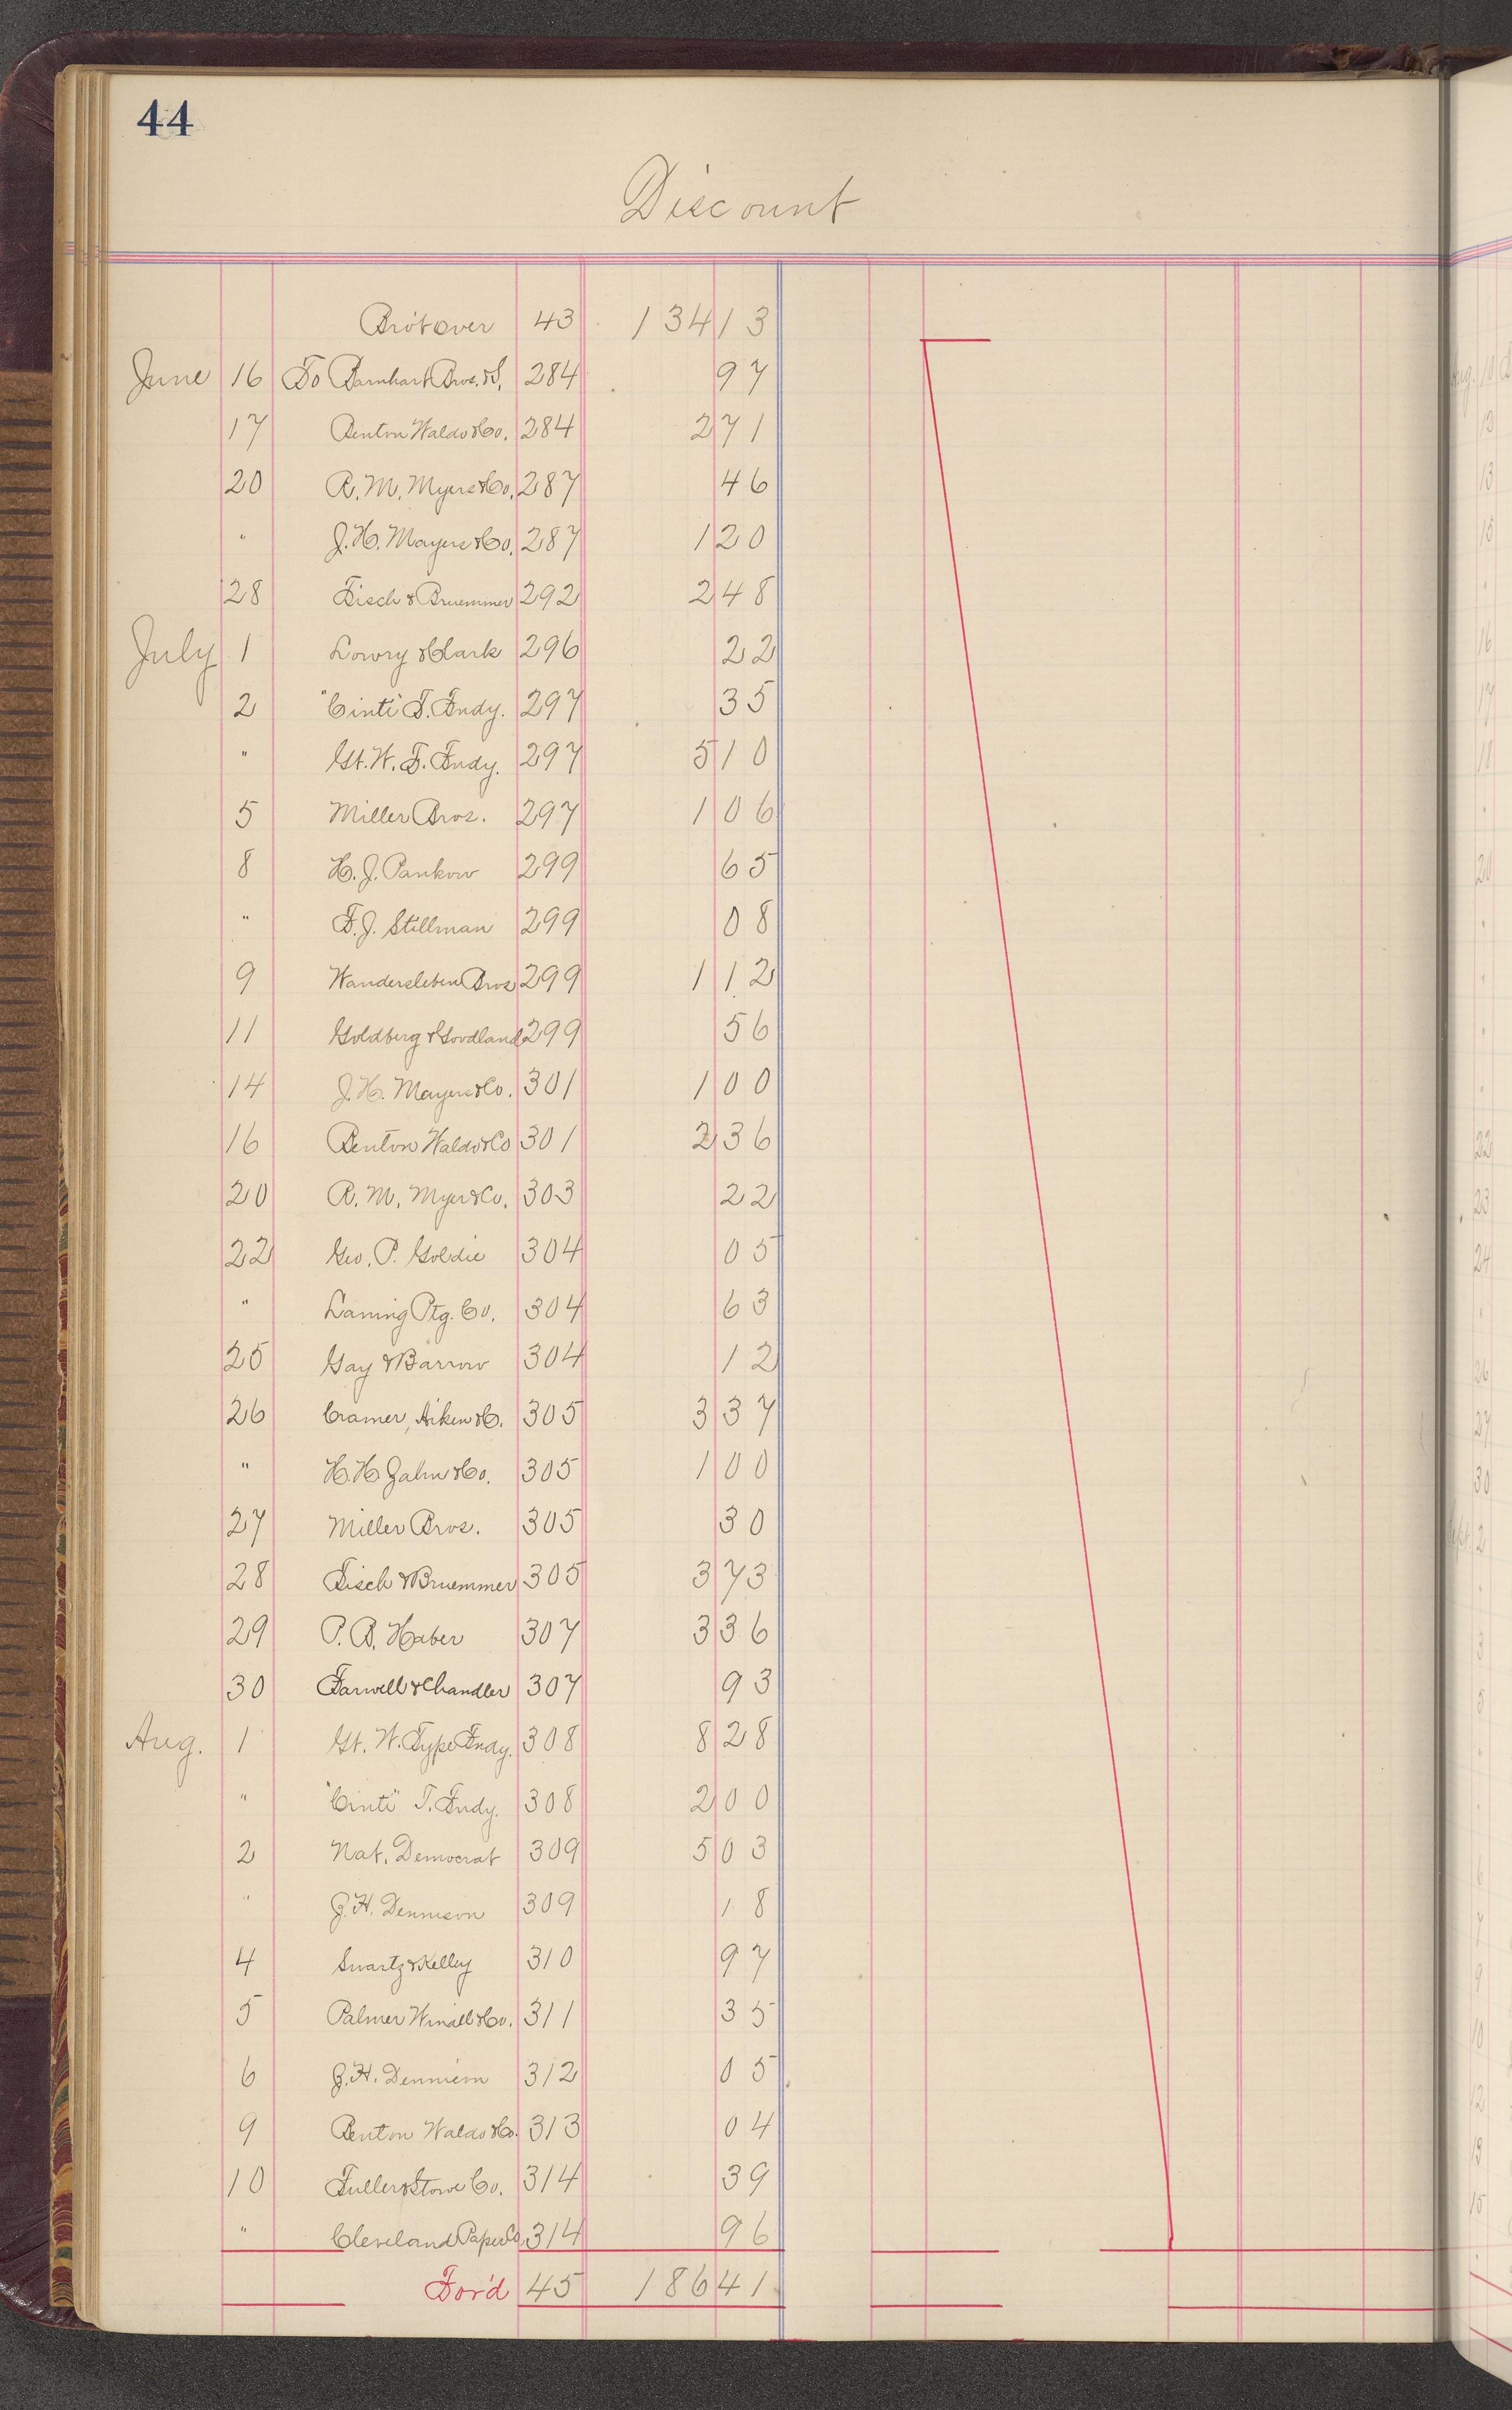 44
Discount
Bro't over 43 134 13
June 16 To Barnhart Bros. & S. 284 97
17 Benton Waldo & Co. 284 2 71
20 R. M. Myers & Co. 287 46
" J. H. Mayers & Co. 287 1 20
28 Fisch & Bruemmer 292 2 48
July 1 Lowry & Clark 296 22
2 "Cinti" T. Fndy. 297 35
" Gt. W. T. Fndy. 297 5 10
5 Miller Bros. 297 1 06
8 H. J. Pankow 299 65
" T. J. Stillman 299 08
9 Wandersleben Bros 299 1 12
11 Goldberg & Goodland 299 56
14 J. H. Mayers & Co. 301 1 00
16 Benton Waldo & Co 301 2 36
20 R. M. Myer & Co. 303 22
22 Geo. P. Goldie 304 05
" Laning Ptg. Co. 304 63
25 Gay & Barrow 304 12
26 Cramer, Aiken & C. 305 3 37
" H. H. Zahn & Co. 305 1 00
27 Miller Bros. 305 30
28 Fisch & Bruemmer 305 3 73
29 P. B. Haber 307 3 36
30 Farwell & Chandler 307 93
Aug. 1 Gt. W. Type Fndy. 308 8 28
" "Cinti" T. Fndy. 308 2 00
2 Nat. Democrat 309 5 03
" J. H. Dennison 309 18
4 Swartz & Kelley 310 97
5 Palmer Winall & Co. 311 35
6 J. H. Dennison 312 05
9 Benton Waldo & Co. 313 04
10 Fuller & Stowe Co. 314 39
" Cleveland Paper Co. 314 96
For'd 45 186 41